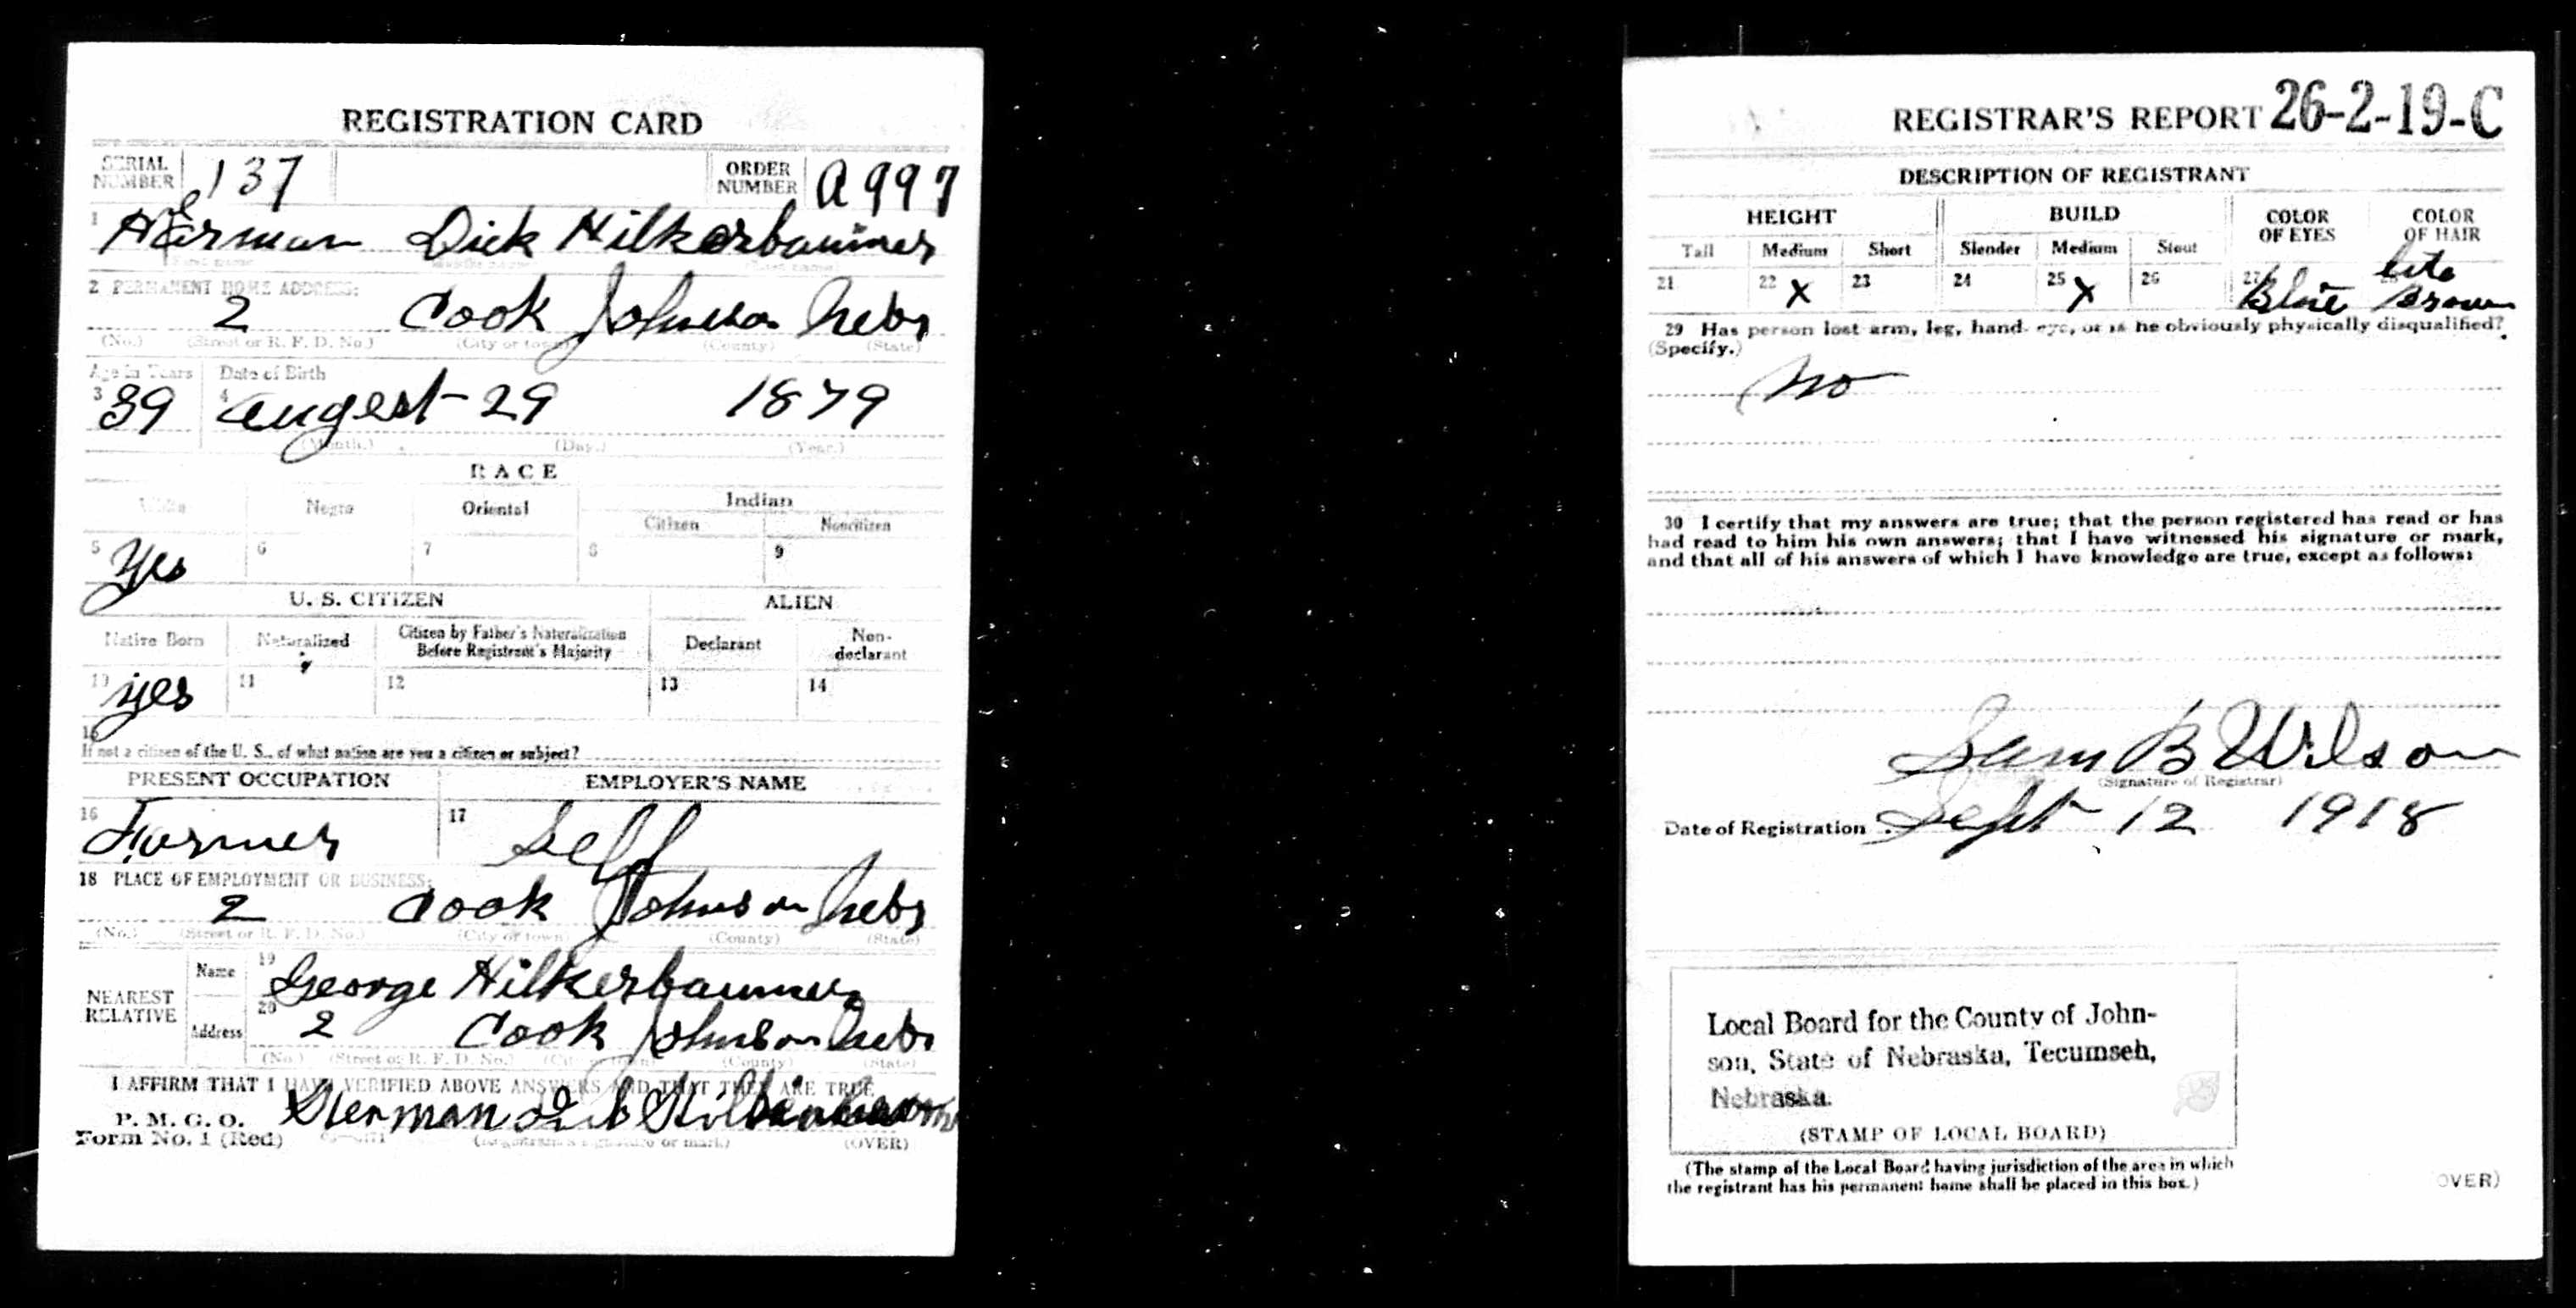 REGISTRATION CARD
SERIAL NUMBER 137 ORDER NUMBER A997
1 Herman Dick Hilkerbaumer
(First name) (Middle name) (Last name)
2 PERMANENT HOME ADDRESS:
2 Cook Johnson Nebr
(No.) (Street or R. F. D. No.) (City or town) (County) (State)
Age in Years Date of Birth
3 39 4 Augest 29 1879
(Month.) (Day.) (Year.)
RACE
White Negro Oriental Indian
Citizen Noncitizen
5 Yes 6 7 8 9
U. S. CITIZEN ALIEN
Native Born Naturalized Citizen by Father's Naturalization Before Registrant's Majority Declarant Non-declarant
10 yes 11 12 13 14
15
If not a citizen of the U. S., of what nation are you a citizen or subject?
PRESENT OCCUPATION EMPLOYER'S NAME
16 Farmer 17 Self
18 PLACE OF EMPLOYMENT OR BUSINESS:
2 Cook Johnson Nebr
(No.) (Street or R. F. D. No.) (City or town) (County) (State)
NEAREST RELATIVE
Name 19 George Hilkerbaumer
Address 20 2 Cook Johnson Nebr
(No.) (Street or R. F. D. No.) (City or town) (County) (State)
I AFFIRM THAT I HAVE VERIFIED ABOVE ANSWERS AND THAT THEY ARE TRUE
P. M. G. O.
Form No. 1 (Red) Herman
(Registrant's signature or mark) (OVER)
REGISTRAR'S REPORT 26-2-19-C
DESCRIPTION OF REGISTRANT
HEIGHT BUILD COLOR OF EYES COLOR OF HAIR
Tall Medium Short Slender Medium Stout
21 22 X 23 24 25 X 26 27 Blue 28 lite Brown
29 Has person lost arm, leg, hand, eye, or is he obviously physically disqualified?
(Specify.)
No
30 I certify that my answers are true; that the person registered has read or has
had read to him his own answers; that I have witnessed his signature or mark,
and that all of his answers of which I have knowledge are true, except as follows:
Sam B Wilson
(Signature of Registrar)
Date of Registration Sept 12 1918
Local Board for the County of John-
son, State of Nebraska, Tecumseh,
Nebraska.
(STAMP OF LOCAL BOARD)
(The stamp of the Local Board having jurisdiction of the area in which
the registrant has his permanent home shall be placed in this box.)
OVER)